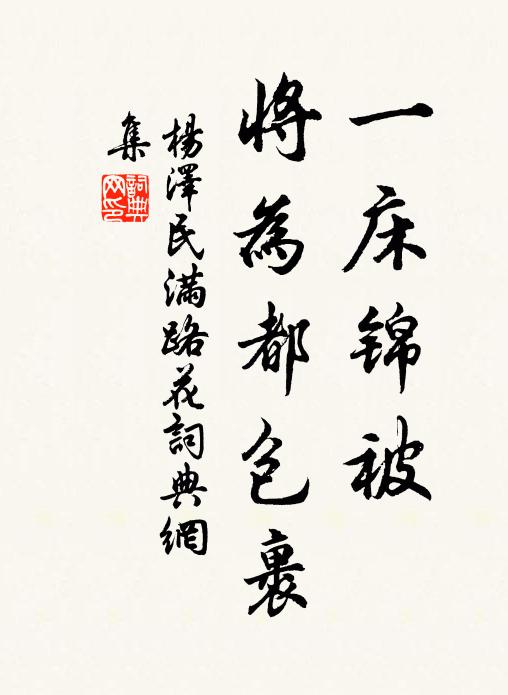 一床锦被
將為都包裹
楊澤民滿路花詞典網
集
詞典
网印